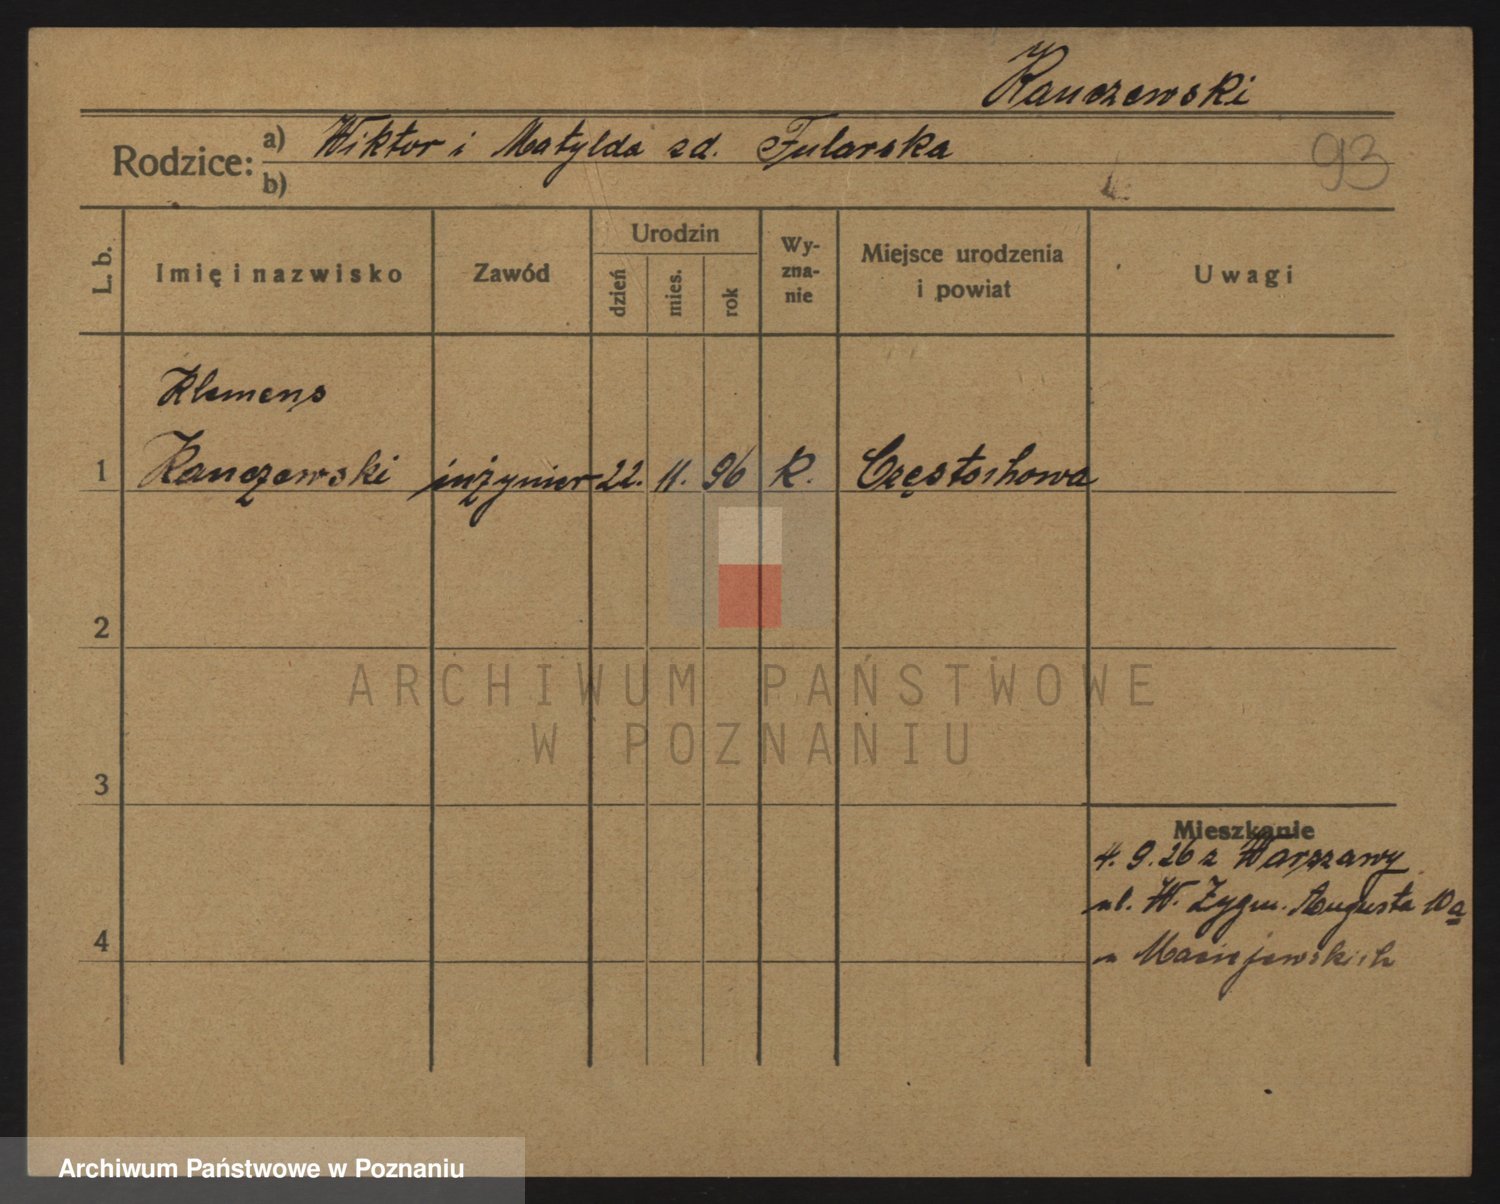 Kanczewski
Rodzice: a) Wiktor i Matylda zd. Fularska
b)
93
L. b.
Imię i nazwisko
Zawód
Urodzin
dzień
mies.
rok
Wy-
zna-
nie
Miejsce urodzenia
i powiat
Uwagi
Klemens
1 Kanczewski inżynier 22. 11. 96 K. Częstochowa
2
3
4
ARCHIWUM PAŃSTWOWE
W POZNANIU
Mieszkanie
4. 9. 26 z Warszawy
ul. W. Zygm. Augusta 10a
u Maciejewskich
Archiwum Państwowe w Poznaniu